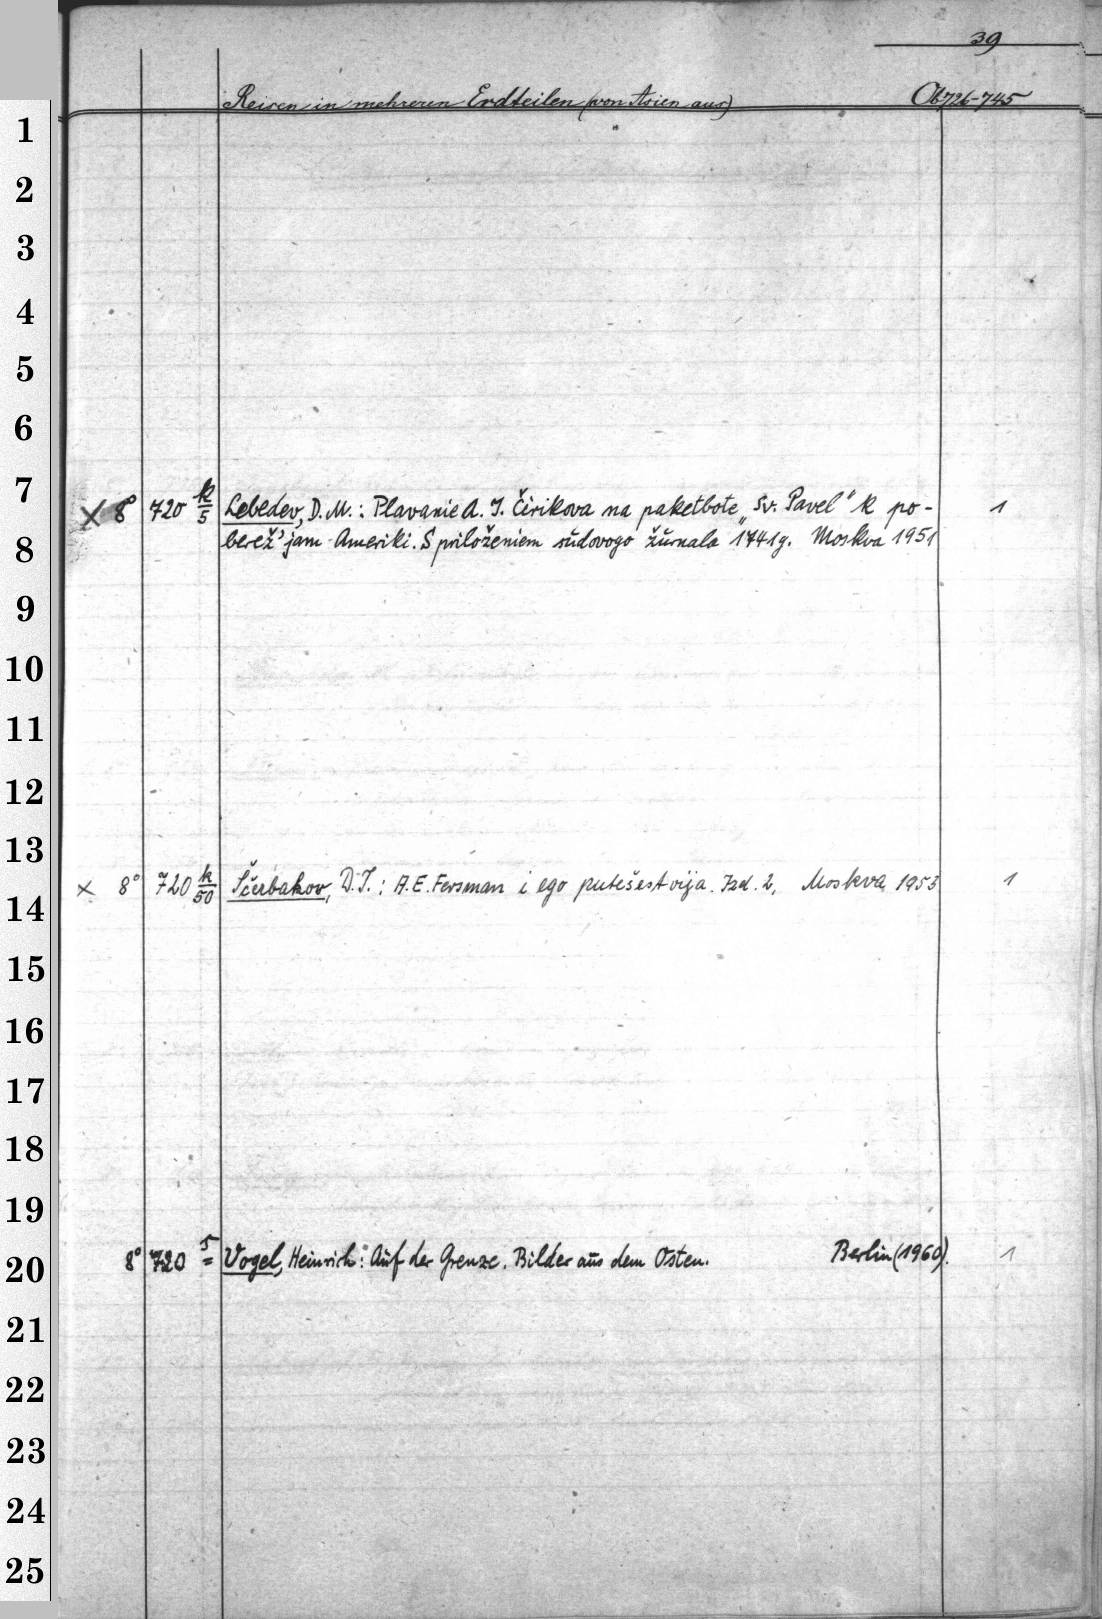 39
Reisen in mehreren Erdteilen (von Asien aus) Ob 726-745
1
2
3
4
5
6
7
X 8° 720 k/5 Lebedev, D. M.: Plavanie A. I. Čirikova na paketbote „Sv. Pavel" k po- 1
8
berež'jam Ameriki. S priloženiem sudovogo žurnala 1741g. Moskva 1951
9
10
11
12
13
x 8° 720 k/50 Ščerbakov, D. I.: A. E. Fersman i ego putešestvija. Izd. 2, Moskva 1953 1
14
15
16
17
18
19
8° 720 5 Vogel, Heinrich: Auf der Grenze. Bilder aus dem Osten. Berlin (1960). 1
20
21
22
23
24
25